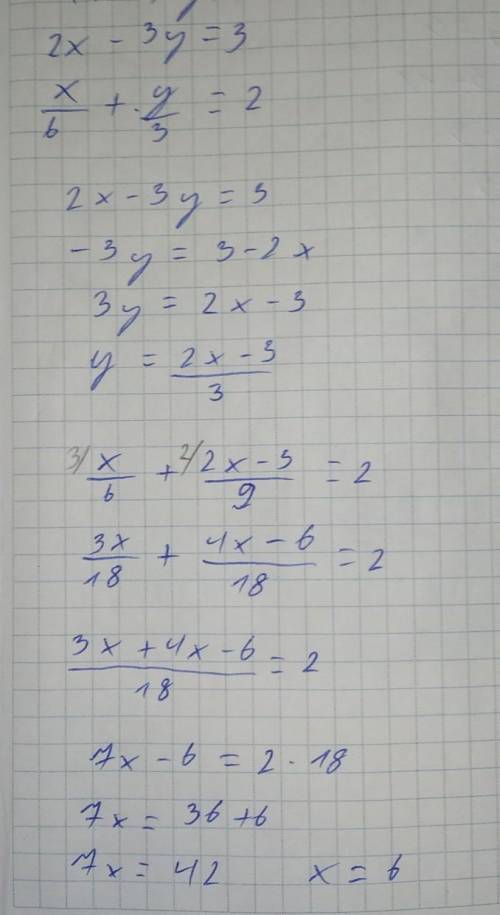 2x - 3y = 3
x/6 + y/3 = 2
2x - 3y = 3
-3y = 3 - 2x
3y = 2x - 3
y = (2x - 3)/3
3/ x/6 + 2/ (2x - 3)/9 = 2
3x/18 + (4x - 6)/18 = 2
(3x + 4x - 6)/18 = 2
7x - 6 = 2 · 18
7x = 36 + 6
7x = 42 x = 6